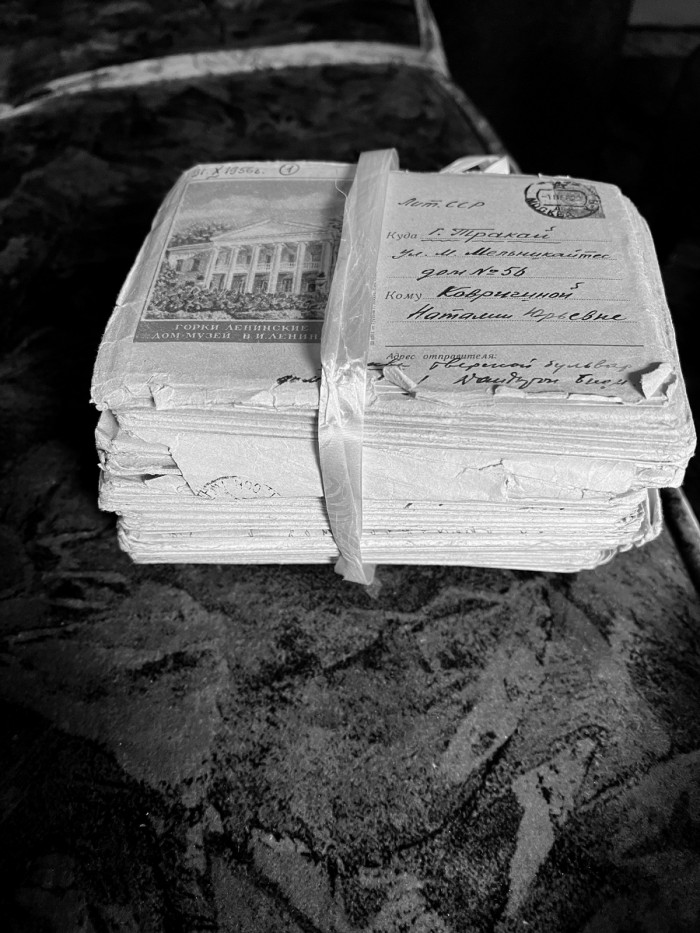 31. X 1956г. ①
ГОРКИ ЛЕНИНСКИЕ
ДОМ-МУЗЕЙ В. И. ЛЕНИН
Лит. ССР
Куда г. Тракай
Ул. М. Мельникайтес
дом № 5б
Кому Ковригиной
Наталии Юрьевне
Адрес отправителя:
бульвар